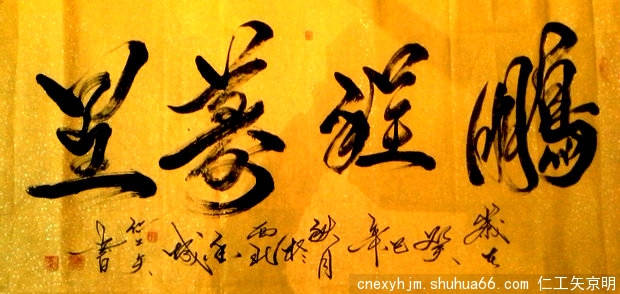 鵬程萬里
歲在癸巳年秋月於西北金城仁工矢書
cnexyhjm.shuhua66.com 仁工矢京明